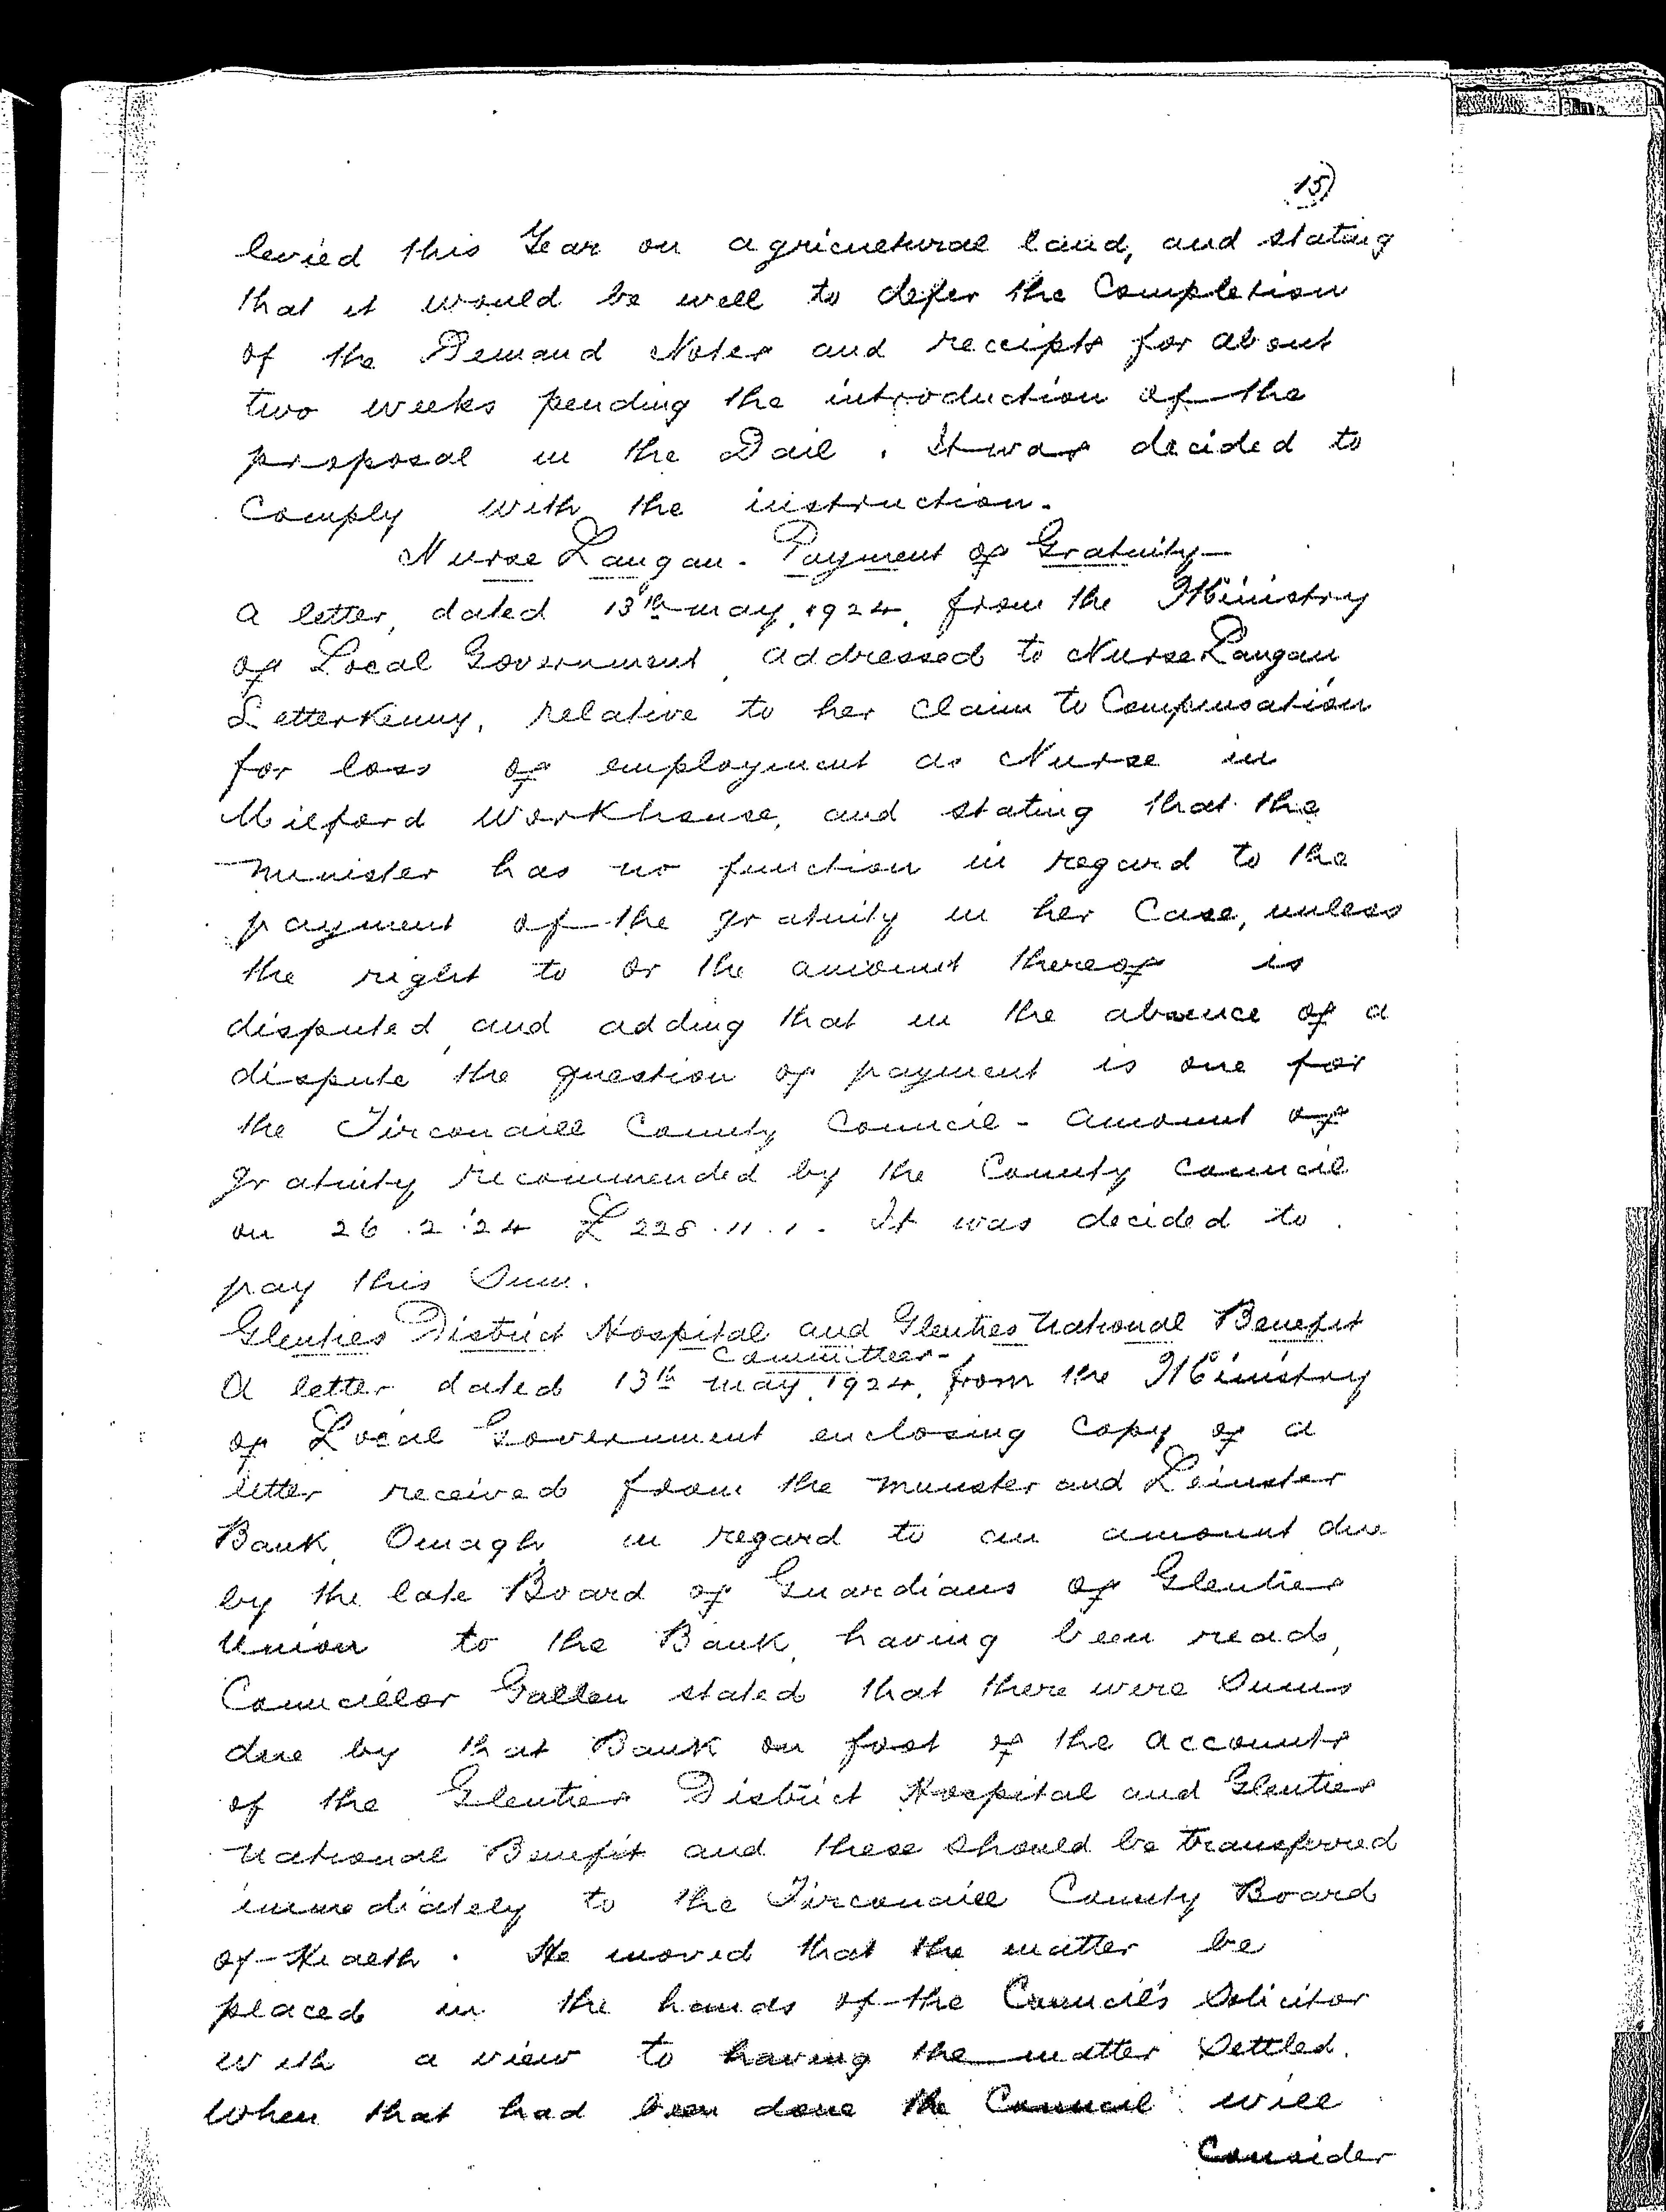 15)
levied this Year on agricultural land, and stating
that it would be well to defer the Completion
of the Demand Notes and receipts for about
two weeks pending the introduction of the
proposal in the Dail. It was decided to
Comply with the instruction.
Nurse Langan. Payment of Gratuity-
A letter, dated 13th May, 1924, from the Ministry
of Local Government, addressed to Nurse Langan
Letterkenny, relative to her claim to Compensation
for loss of employment as Nurse in
Milford Workhouse, and stating that the
Minister has no function in regard to the
payment of the gratuity in her Case, unless
the right to or the amount thereof is
disputed, and adding that in the absence of a
dispute the question of payment is one for
the Tirconaill County Council - amount of
gratuity recommended by the County Council
on 26.2.24 £228.11.1. It was decided to
pay this Sum.
Glenties District Hospital and Glenties National Benefit
Committees-
A letter dated 13th May, 1924, from the Ministry
of Local Government enclosing Copy of a
letter received from the Munster and Leinster
Bank, Omagh, in regard to an amount due
by the late Board of Guardians of Glenties
Union to the Bank, having been read,
Councillor Gallen stated that there were Sums
due by that Bank on foot of the accounts
of the Glenties District Hospital and Glenties
National Benefit and these should be transferred
immediately to the Tirconaill County Board
of Health. He moved that the matter be
placed in the hands of the Council's Solicitor
with a view to having the matter Settled.
When that had been done the Council will
Consider